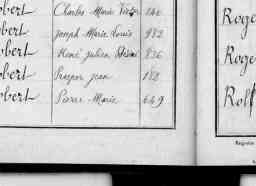 obert Charles Marie Victor 146
obert Joseph Marie Louis 982
obert René Julien 836
obert Prosper Jean 182
obert Pierre-Marie 649
Roge
Roge
Registre